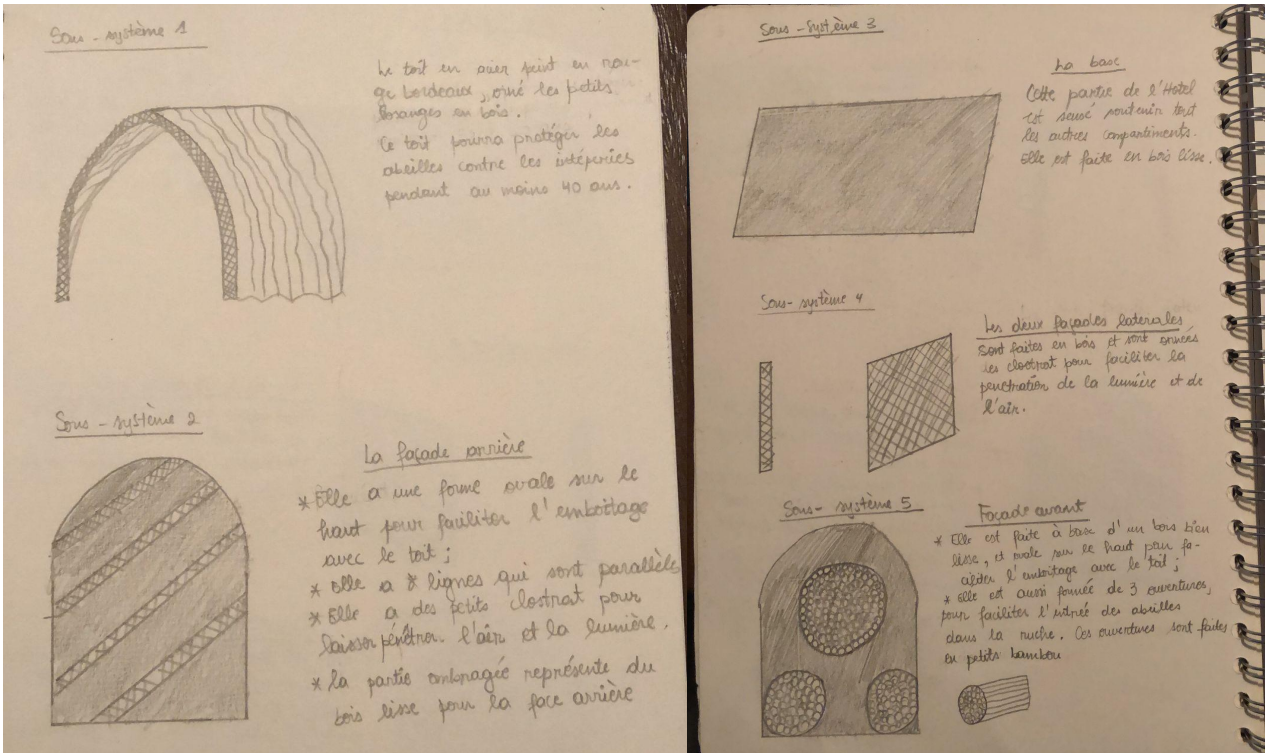 Sous-système 1
Le toit en acier peint en rou-
ge bordeaux, orné les petits
losanges en bois.
Ce toit pourra protéger les
abeilles contre les intépéries
pendant au moins 40 ans.
Sous-système 2
La façade arrière
* Elle a une forme ovale sur le
haut pour faciliter l'emboitage
avec le toit ;
* elle a 8 lignes qui sont parallèls
* Elle a des petits clostrat pour
laisser pénétrer l'air et la lumière.
* la partie ombragée représente du
bois lisse pour la face arrière
Sous-système 3
La base
Cette partie de l'Hotel
est sensé soutenir tout
les autres compartiments.
Elle est faite en bois lisse.
Sous-système 4
Les deux façades laterales
sont faites en bois et sont ornées
les clostrat pour faciliter la
penetration de la lumière et de
l'air.
Sous-système 5
Façade avant
* Elle est faite à base d'un bois bien
lisse, et ovale sur le haut pour fa-
ciliter l'emboitage avec le toit ;
* elle est aussi formée de 3 ouvertures,
pour faciliter l'entrée des abeilles
dans la ruche. Ces ouvertures sont faites
en petits bambou